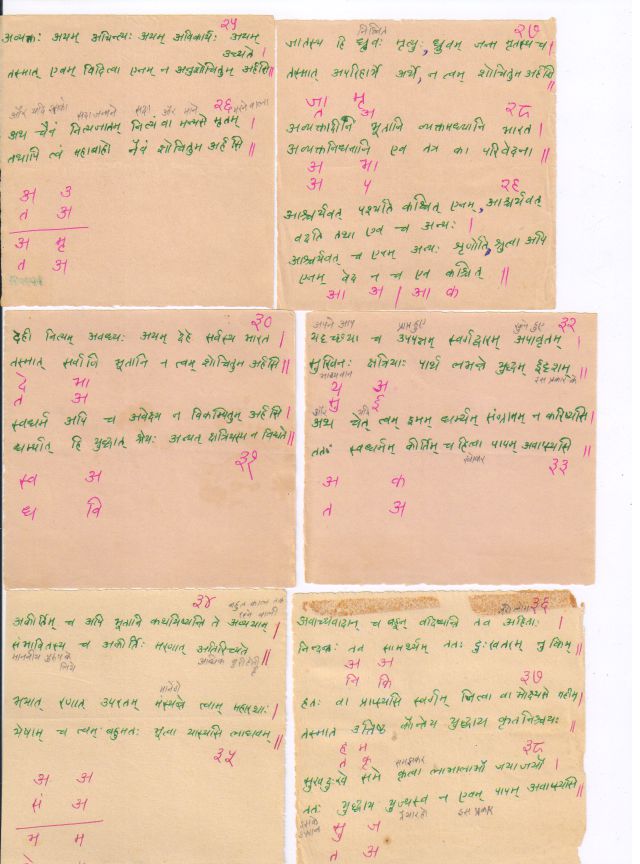 २५
अव्यक्तः अयम् अचिन्त्यः अयम् अविकार्यः अयम्
उच्यते ।
तस्मात् एवम् विदित्वा एनम् न अनुशोचितुम् अर्हसि ॥
और यदि इसको सदा जन्मने सदा और माने मरने वाला
२६
अथ चैनं नित्यजातम् नित्यं वा मन्यसे मृतम् ।
तथापि त्वं महाबाहो नैवं शोचितुम अर्हसि ॥
अ उ
त अ
अ मृ
त अ
२७
निश्चित
जातस्य हि ध्रुवः मृत्युः, ध्रुवम् जन्म मृतस्य च ।
तस्मात् अपरिहार्ये अर्थे, न त्वम् शोचितुम अर्हसि ॥
जा मृ
त अ
२८
अव्यक्तादीनि भूतानि व्यक्तमध्यानि भारत ।
अव्यक्तनिधनानि एव तत्र का परिवेदना ॥
अ भा
अ प
२९
आश्चर्यवत् पश्यति कश्चित् एनम्, आश्चर्यवत्
वदति तथा एव च अन्यः ।
आश्चर्यवत् च एनम् अन्यः श्रृणोति, श्रुत्वा अपि
एनम् वेद न च एव कश्चित् ॥
आ अ । आ क
३०
देही नित्यम् अवध्यः अयम् देहे सर्वस्य भारत ।
तस्मात् सर्वाणि भूतानि न त्वम् शोचितुम अर्हसि ॥
दे भा
त अ
स्वधर्मम् अपि च अवेक्ष्य न विकम्पितुम् अर्हसि ।
धर्म्यात् हि युद्धात् श्रेयः अन्यत् क्षत्रियस्य न विद्यते ॥
३१
स्व अ
ध वि
३२
अपने आप प्राप्त हुए खुले हुए
यदृच्छया च उपपन्नम् स्वर्गद्वारम् अपावृतम् ।
सुखिनः क्षत्रियाः पार्थ लभन्ते युद्धम् ईदृशम् ॥
भाग्यवान इस प्रकार के
य अ
सु ई
और यदि
अथ चेत् त्वम् इमम् धर्म्यम् संग्रामम् न करिष्यसि ।
ततः स्वधर्मम् कीर्तिम् च हित्वा पापम् अवाप्स्यसि ॥
खोकर
३३
अ क
त अ
३४
बहुत काल तक
रहने वाली
अकीर्तिम् च अपि भूतानि कथयिष्यन्ति ते अव्ययाम् ।
संभावितस्य च अकीर्तिः मरणात् अतिरिच्यते ॥
माननीय पुरुष के
लिये
मानेंगे
भयात् रणात् उपरतम् मंस्यन्ते त्वाम् महारथाः ।
येषाम् च त्वम् बहुमतः भूत्वा यास्यसि लाघवम् ॥
३५
अ अ
सं अ
भ म
३६
अवाच्यवादान् च बहून् वदिष्यन्ति तव अहिताः ।
निन्दन्तः तव सामर्थ्यम् ततः दुःखतरम् नु किम् ॥
अ अ
नि कि
३७
हतः वा प्राप्स्यसि स्वर्गम् जित्वा वा भोक्ष्यसे महीम् ।
तस्मात् उत्तिष्ठ कौन्तेय युद्धाय कृतनिश्चयः ॥
ह म
त कृ
३८
समझकर
सुखदुःखे समे कृत्वा लाभालाभौ जयाजयौ ।
ततः युद्धाय युज्यस्व न एवम् पापम् अवाप्स्यसि ॥
तैयार हो इस प्रकार
सु ज
त अ